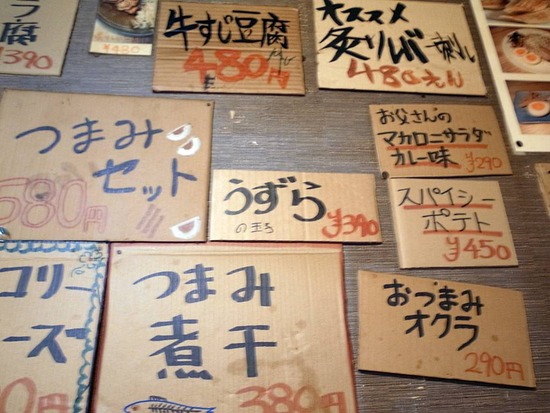 ラ
腐
¥390
¥480
牛すじ豆腐
480円
オススメ
炙りレバー刺し
480えん
お父さんの
マカロニサラダ
カレー味 ¥290
つまみ
セット
580円
うずら
の玉子 ¥390
スパイシー
ポテト
¥450
コリー
ース
0円
つまみ
煮干
380円
おつまみ
オクラ
290円